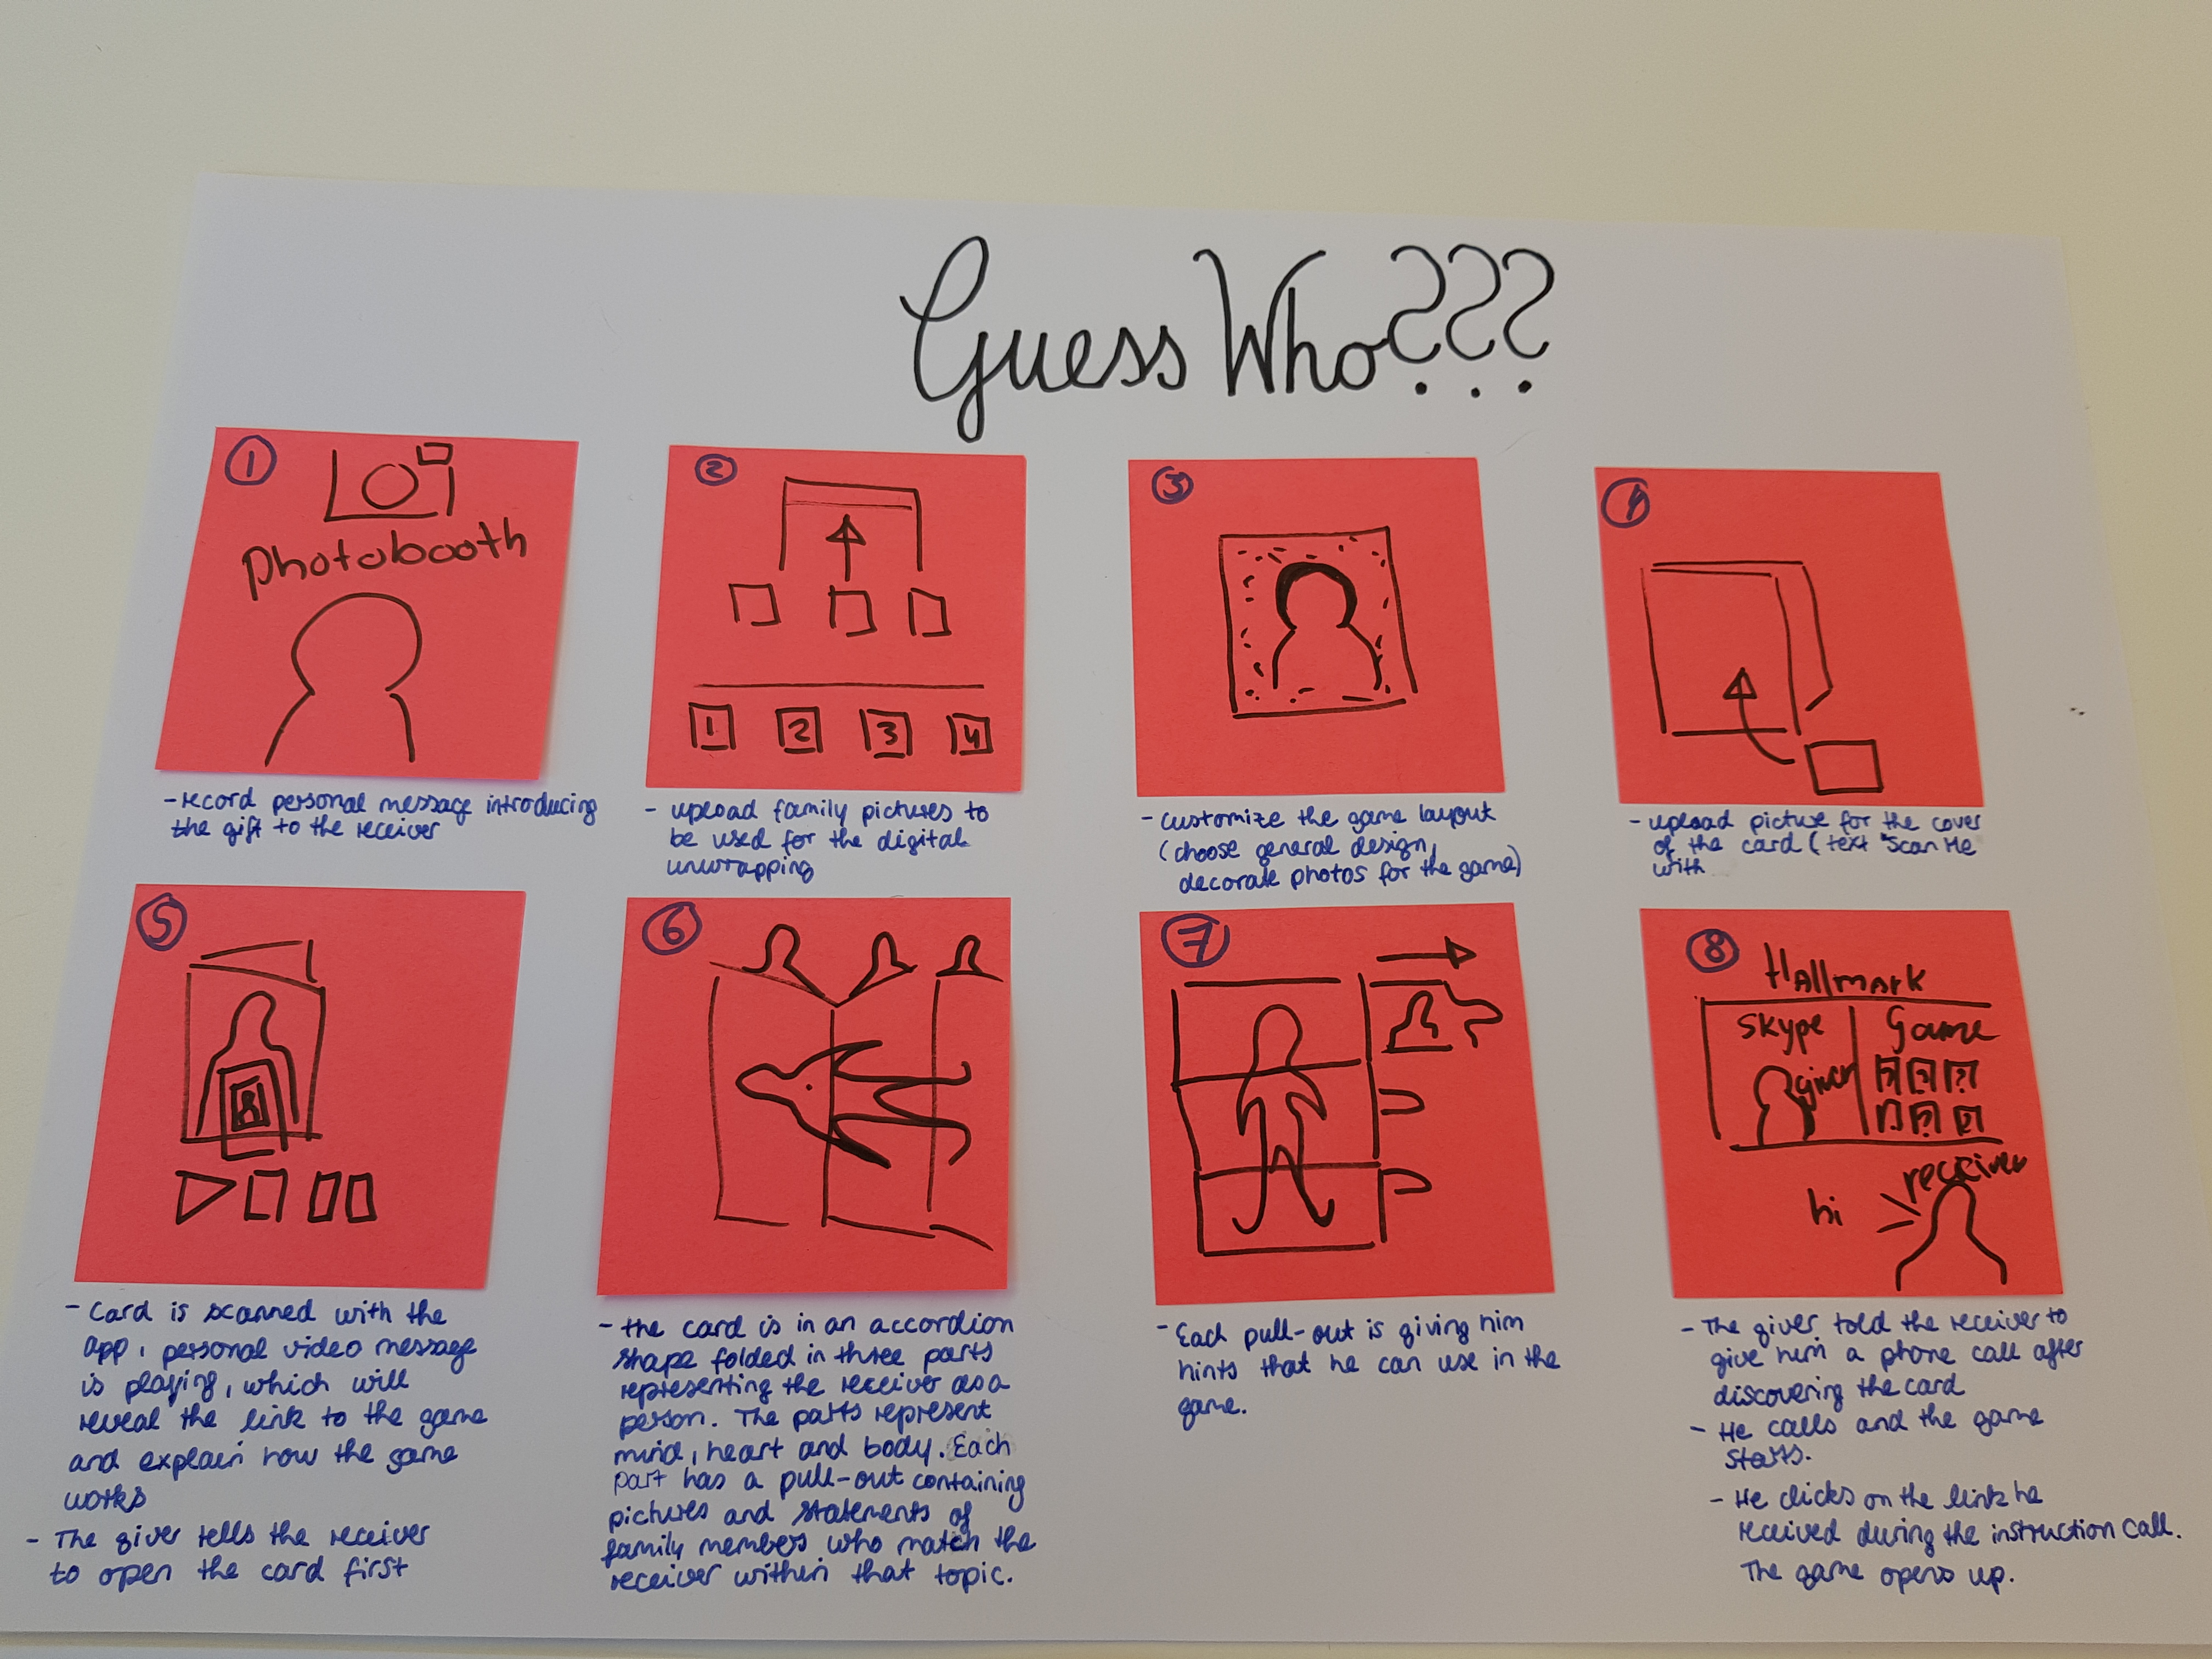 Guess Who???
1
Photobooth
- record personal message introducing
the gift to the receiver
2
1 2 3 4
- upload family pictures to
be used for the digital
unwrapping
3
- customize the game layout
(choose general design,
decorate photos for the game)
4
- upload picture for the cover
of the card (text "Scan Me
with
5
- card is scanned with the
app, personal video message
is playing, which will
reveal the link to the game
and explain how the game
works
- The giver tells the receiver
to open the card first
6
- the card is in an accordion
shape folded in three parts
representing the receiver as a
person. The parts represent
mind, heart and body. Each
part has a pull-out containing
pictures and statements of
family members who match the
receiver within that topic.
7
- Each pull-out is giving him
hints that he can use in the
game.
8
Hallmark
skype game
giver
receiver
hi
- The giver told the receiver to
give him a phone call after
discovering the card
- He calls and the game
starts.
- He clicks on the link he
received during the instruction call.
The game opens up.